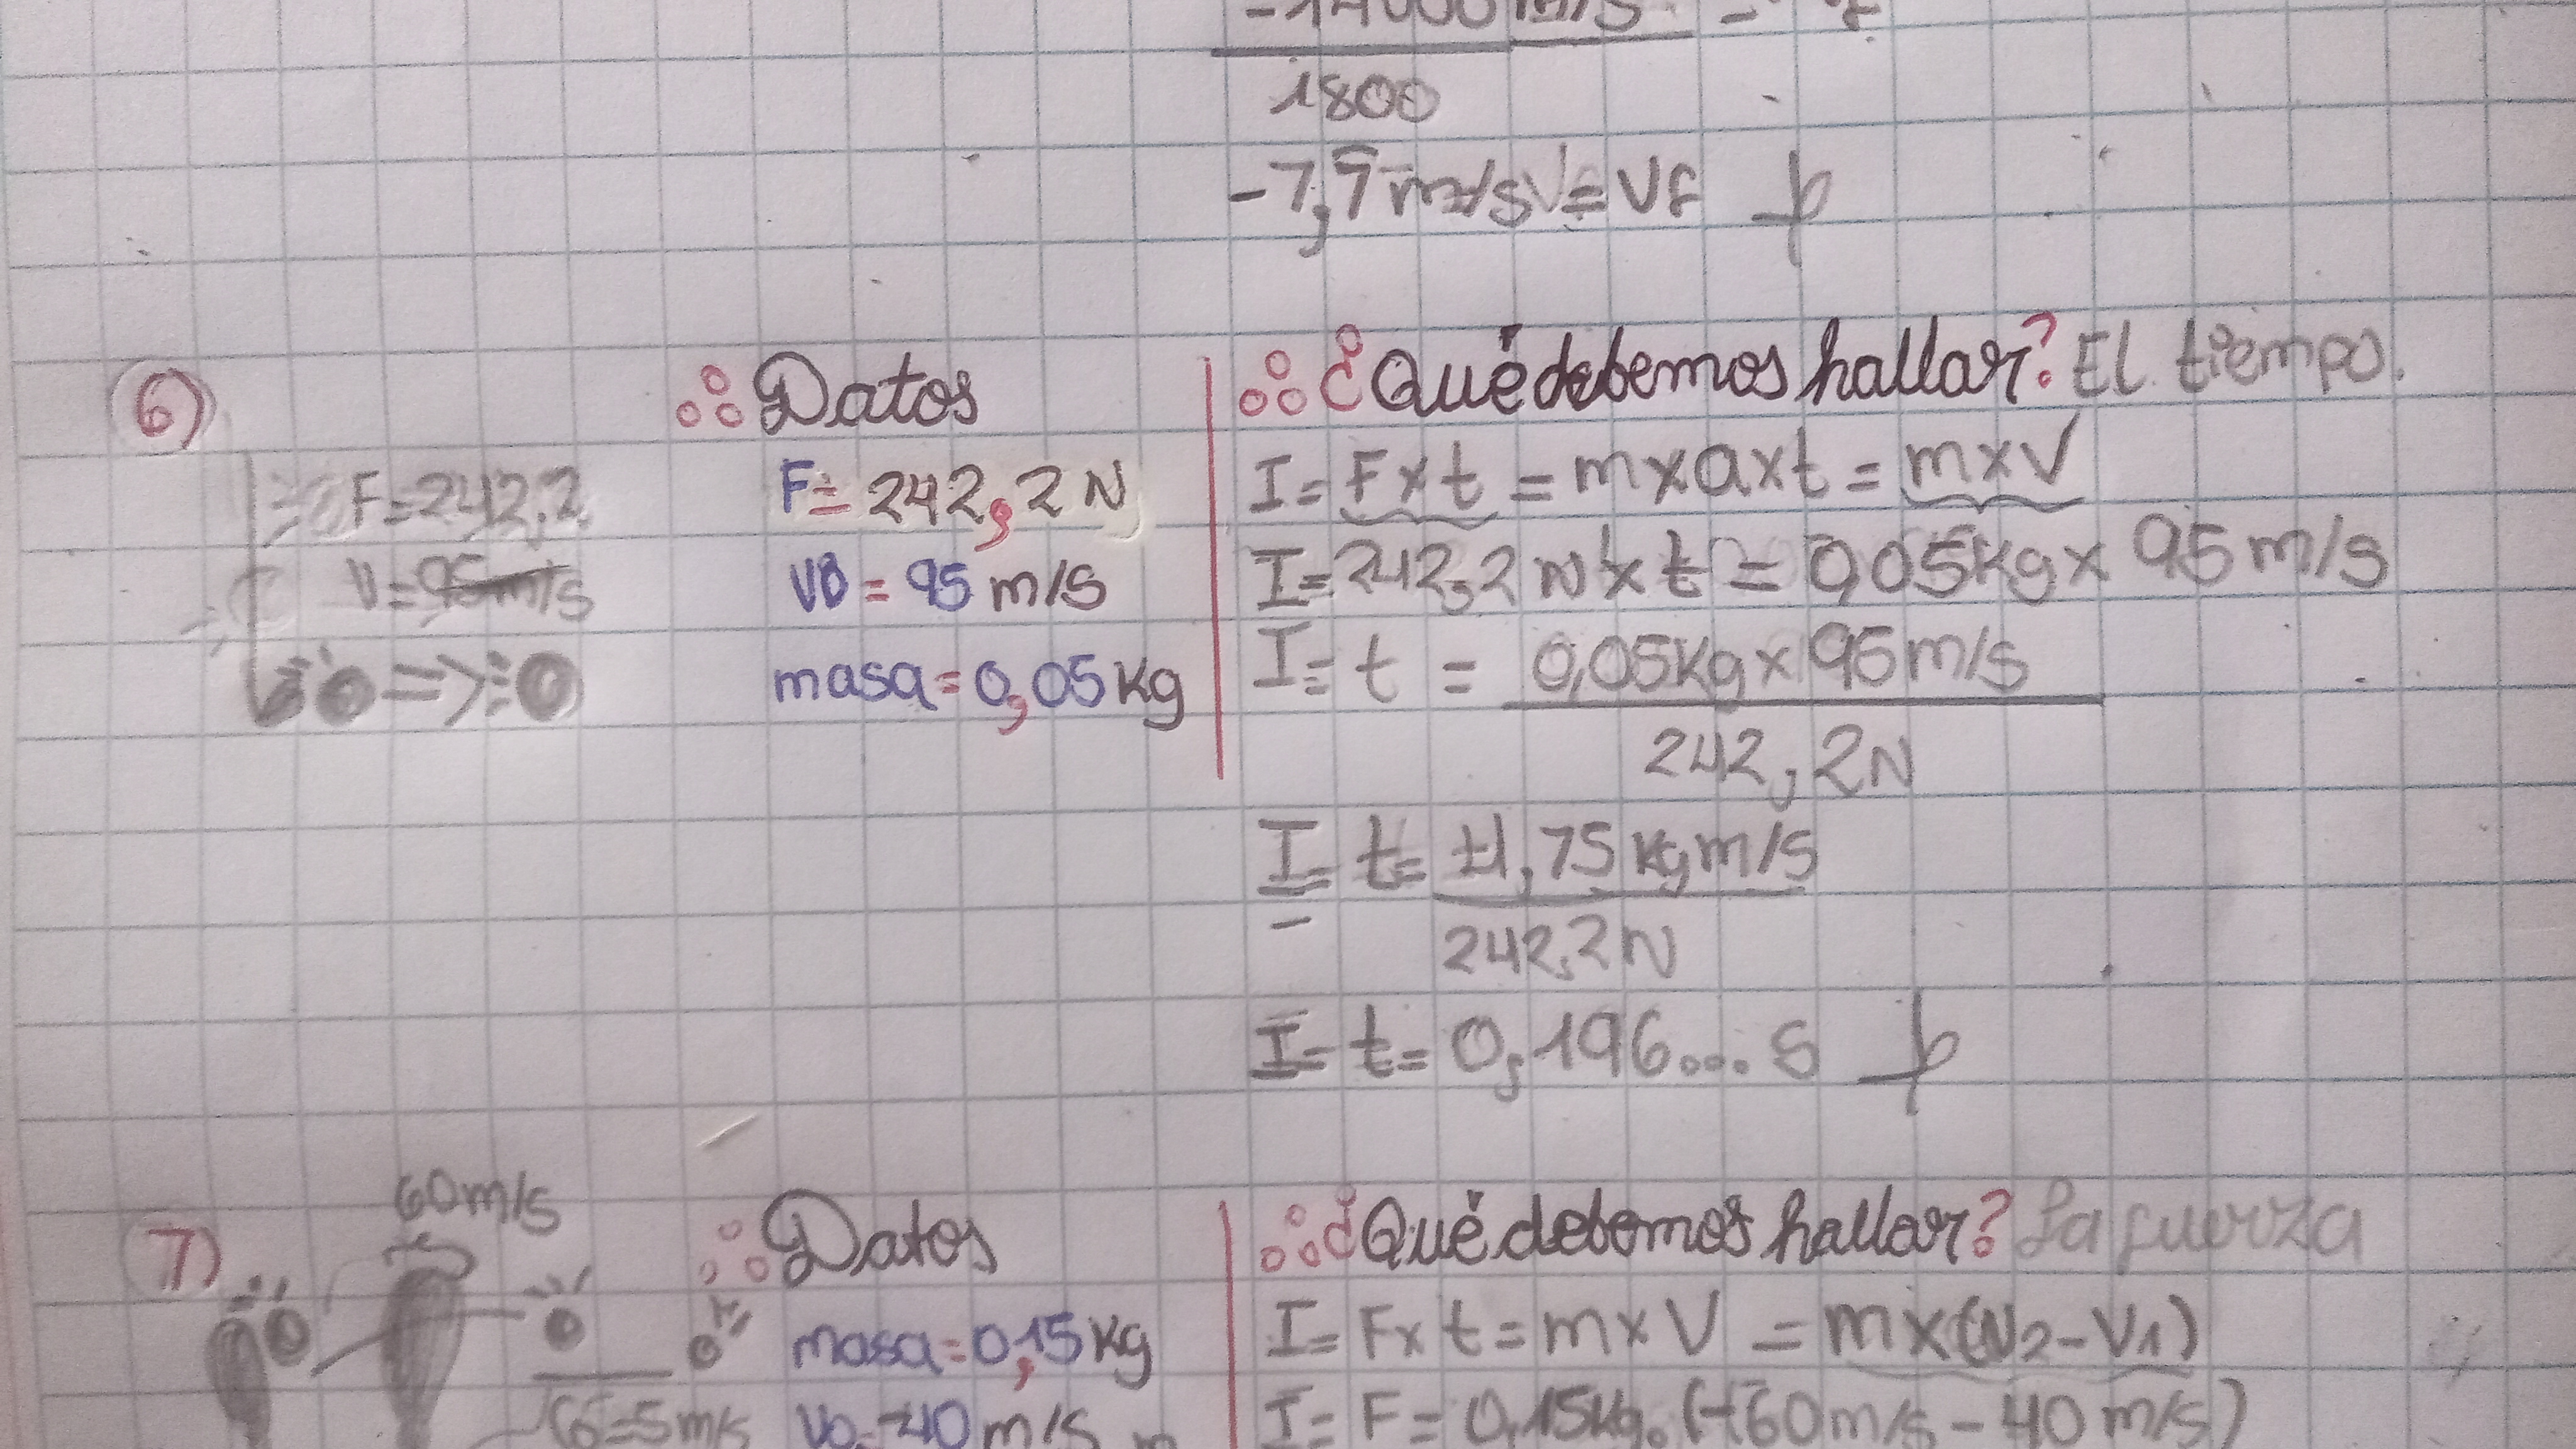 -14000 m/s =
1800
-7,7 m/s = Vf
6)
F=242,2
V=95m/s
=>
Datos
F= 242,2 N
V0 = 95 m/s
masa= 0,05 Kg
¿Qué debemos hallar? El tiempo.
I= F x t = m x a x t = m x V
I= 242,2 N x t = 0,05Kg x 95 m/s
I= t = 0,05Kg x 95 m/s
242,2N
I= t= 4,75 Kg m/s
242,2N
I= t= 0,196... s
7)
60m/s
Datos
masa=0,15 Kg
Vo=40 m/s
¿Qué debemos hallar? La fuerza
I= F x t = m x V = m x (V2-V1)
I= F = 0,15Kg. (-60m/s - 40 m/s)